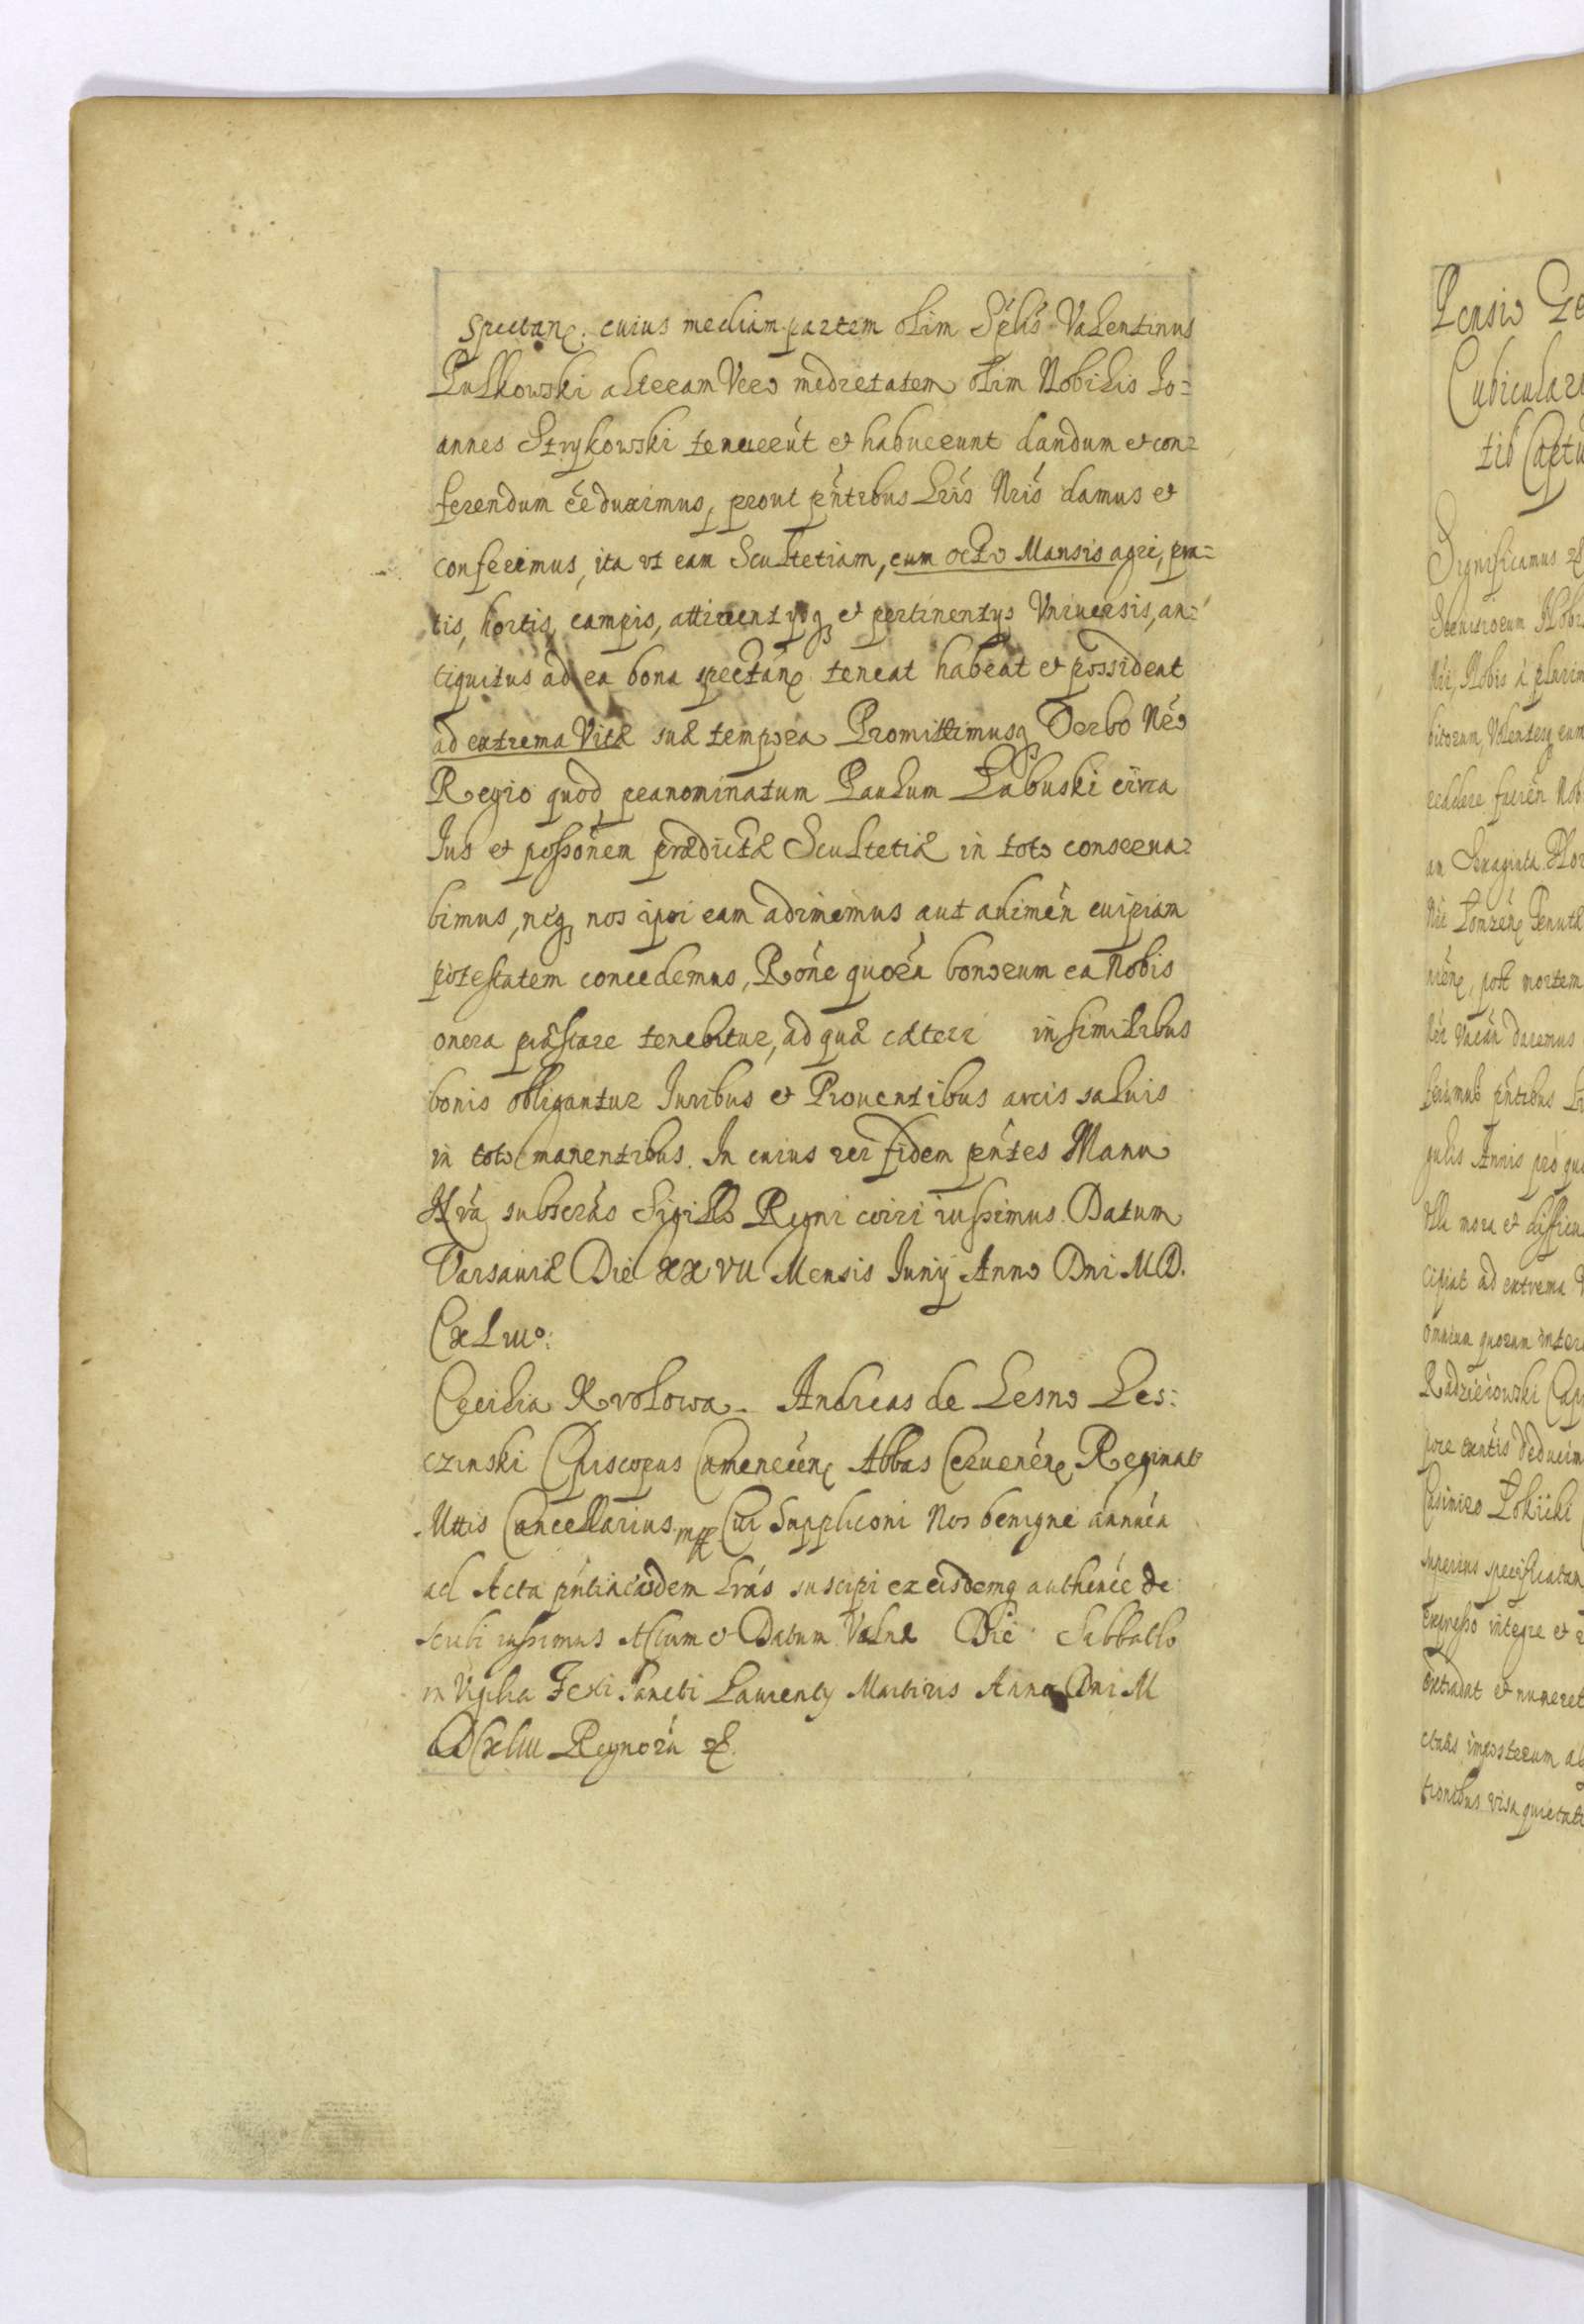 spectan. cuius mediam partem olim Spls Valentinus
Pulkowski alteram Vero medietatem olim Nobilis Jo=
annes Strykowski tenuerut et habuerunt dandum et con=
ferendum ee duximus, prout pntibus Lris Nris damus et
conferimus, ita vt eam Scultetiam, cum octo Mansis agri, pra=
tis, hortis, campis, attinentysq et pertinentys Vniuersis, an=
tiquitus ad ea bona spectan teneat habeat et possideat
ad extrema Vitæ suæ tempora Promittimusq Verbo Nro
Regio quod pranominatum Paulum Łabuski circa
Jus et possonem prædictæ Scultetiæ in toto conserua=
bimus, neq nos ipsi eam adimemus aut adimen cuipiam
potestatem concedemus, Rone quora bonorum ea Nobis
onera præstare tenebitur, ad quæ cæteri in similibus
bonis obligantur Juribus et Prouentibus arcis saluis
in toto manentibus. In cuius rei fidem pntes Manu
Nra subscras Sigillo Regni coiri iussimus. Datum
Varsauiæ Die XXVII Mensis Juny Anno Dni MD.
CXLIIIo:
Cecilia Krolowa. Andreas de Lesno Les:
czinski Episcopus Camenecen Abbas Cervenen Reginat
Mttis Cancellarius mpp Cui Suppliconi Nos benigne annuen
ad Acta pntia easdem Lras suscipi ex eisdemq authence de
scribi iussimus Actum et Datum Vałnæ Die Sabbatho
in Vigilia Festi Sancti Laurenty Martiris Anno Dni M
DCXLIII Regnoru &.
Pensio
Cubicular
tib Captu
Significamus
Nri, Nobis a plurim
bitorum, Volentesq eum
reddere facien Nob
post mortem
Nör Vacan daremus
ferimus pntibus
gulis Annis pro quo
illi mora et difficu
cipiat ad extrema
omnium quorum inter
Radzieiowski Cap
Casimiro Łokicki
superius specificatam
expresso integre et
extradat et numeret
imposterum ab
tionibus visa quietati